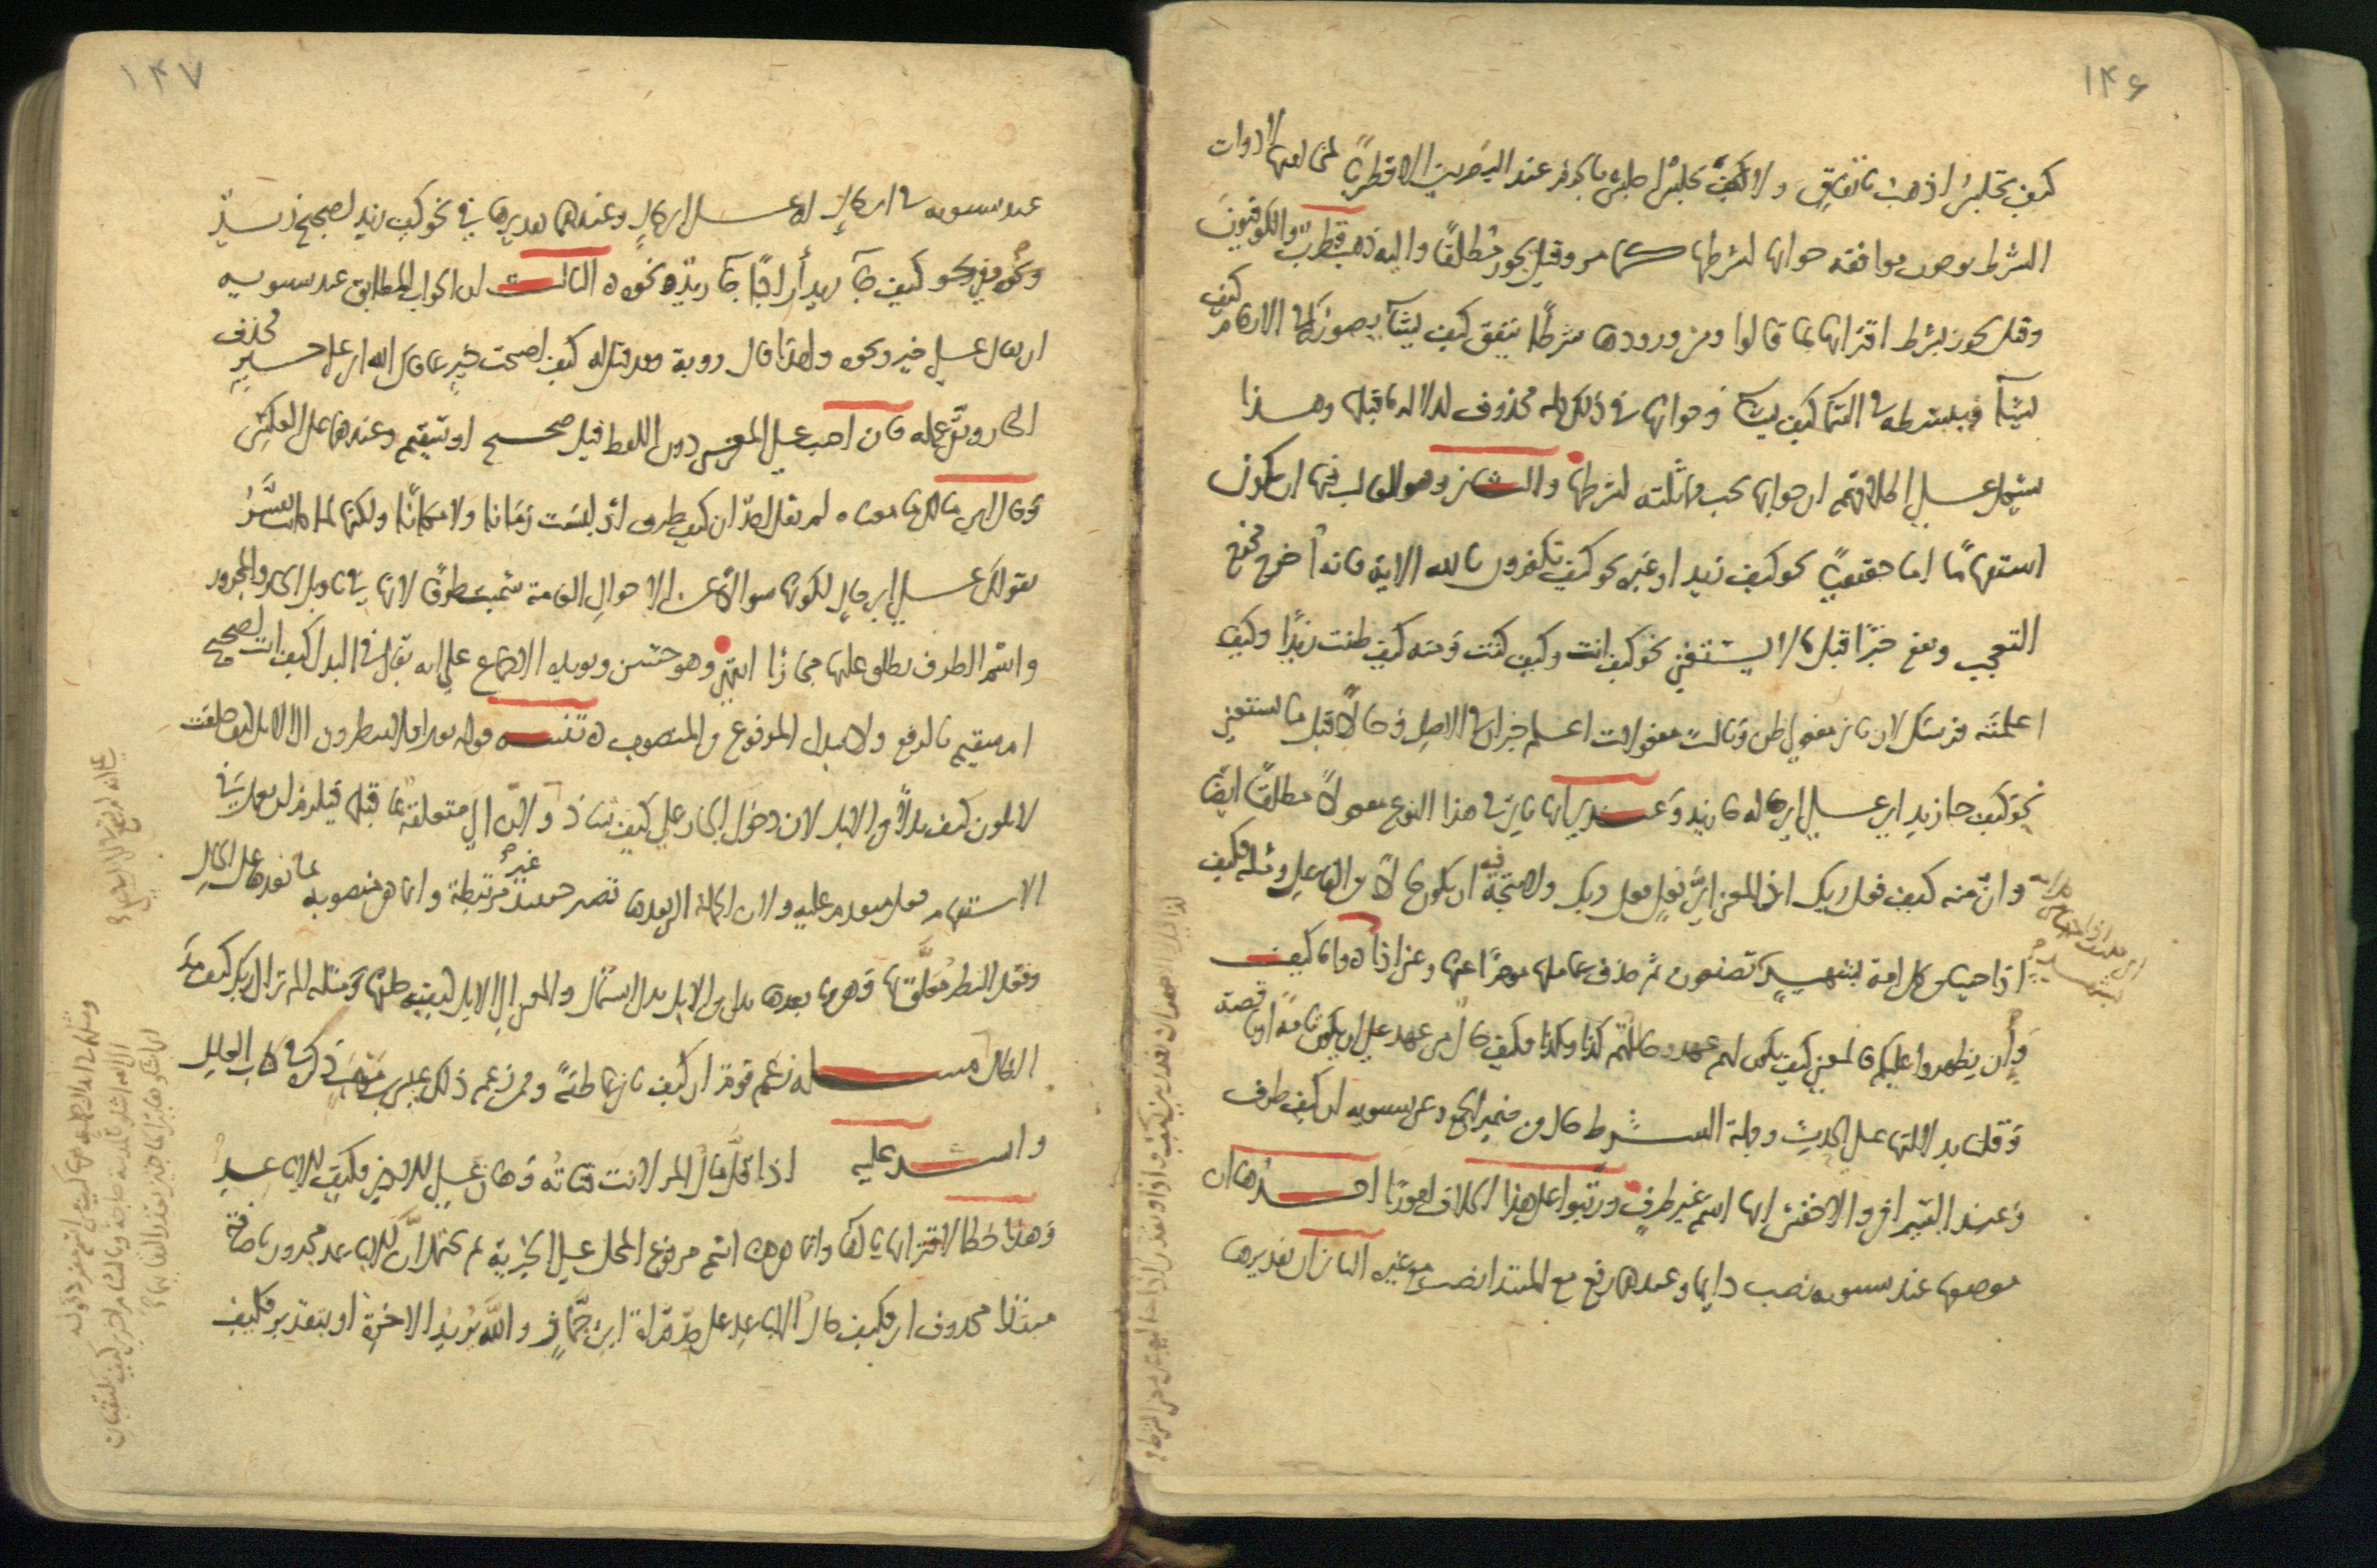 ۱۴۶
كيف تجلس اذهب باتفاق ولا كيف تجلس اجلس بالجزم عند البصريين الا قطربا لمخالفتها لادوات
الشرط بوجوب موافقة جوابها لشرطها كما مر وقيل يجوز مطلقا واليه ذهب قطرب والكوفيون
وقيل يجوز بشرط اقترانها بما قالوا ومن ورودها شرطا ينفق كيف يشآ يصوركم في الارحام كيف
يشآ فيبسطه في السما كيف يشآ وجوابها في ذلك كله محذوف لدلالة ما قبلها وهذا
يشكل على اطلاقهم ان جوابها يجب مماثلته لشرطها والثاني وهو الغالب فيها ان تكون
استفهاما اما حقيقيا نحو كيف زيد او غيره نحو كيف تكفرون بالله الاية فانه اخرج مخرج
التعجب وتقع خبرا قبل ما لا يستغني نحو كيف انت وكيف كنت ومنه كيف ظننت زيدا وكيف
اعلمته فرسك لان ثاني مفعولي ظن وثالث مفعولات اعلم خبران في الاصل وحالا قبل ما يستغني
نحو كيف جا زيد اي على اي حالة جا زيد وعندي انها تاتي في هذا النوع مفعولا مطلقا ايضا
وان منه كيف فعل ربك اذ المعنى اي فعل فعل ربك ولا يتجه فيه ان يكون حالا من الفاعل ومثله فكيف
اذا جينا من كل امة بشهيد اي تصنعون ثم حذف عاملها مؤخرا عنها وعن اذا واما كيف
وان يظهروا عليكم فالمعنى كيف يكون لهم عهد وحالهم كذا وكذا فكيف حال من عهد على ان يكون تامة او ناقصة
وقلنا بدلالتها على الحدث وجملة الشرط حال من ضمير الجمع وعن سيبويه ان كيف ظرف
وعن السيرافي والاخفش انها اسم غير ظرف ورتبوا على هذا الخلاف امورا احدها ان
موضعها عند سيبويه نصب دايما وعندهما رفع مع المبتدا نصب مع غيره الثاني ان تقديرها
۱۴۷
عند سيبويه في اي حال او على اي حال وعندهما تقديرها في نحو كيف زيد اصحيح زيد
ونحوه وفي نحو كيف جآ زيد أراكبا جآ زيد ونحوه الثالث ان الجواب المطابق عند سيبويه
ان يقال على خير ونحوه ولهذا قال روبة وقد قيل له كيف اصبحت خير عافاك الله اي على خير فحذف
الجار وابقى عمله فان اجيب على المعنى دون اللفظ قيل صحيح او سقيم وعندهما على العكس
وقال ابن مالك ما معناه لم يقل احد ان كيف ظرف اذ ليست زمانا ولا مكانا ولكنها لما كانت تفسر
بقولك على اي حال لكونها سوالا عن الاحوال العامة سميت ظرفا لانها في تاويل الجار والمجرور
واسم الظرف يطلق عليها مجازا انتهى وهو حسن ويويده الاجماع على انه يقال في البدل كيف انت اصحيح
ام سقيم بالرفع ولا يبدل المرفوع من المنصوب تنبيه قوله تعالى افلا ينظرون الى الابل كيف خلقت
لا تكون كيف بدلا من الابل لان دخول الجار على كيف شاذ ولان الى متعلقة بما قبلها فيلزم ان يعمل في
الاستفهام فعل متقدم عليه ولان الجملة التي بعدها تصير حينئذ غير مرتبطة وانما هي منصوبة بما بعدها على الحال
وفعل النظر معلق بها وهي وما بعدها بدل من الابل بدل اشتمال والمعنى الى الابل كيفية خلقها ومثله الم تر الى ربك كيف مد
الظل مسألة زعم قوم ان كيف تاتي عاطفة وممن زعم ذلك عيسى بن موهب ذكره في كتاب العلل
وانشد عليه اذا قل مال المر لانت قناته وهان على الادنى فكيف الاباعد
وهذا خطا لاقترانها بالفا وانما هي هنا اسم مرفوع المحل على الخبرية ثم يحتمل ان الاباعد مجرور باضافة
مبتدا محذوف اي فكيف حال الاباعد على حد قراة ابن جماز والله يريد الاخرة او بتقدير فكيف